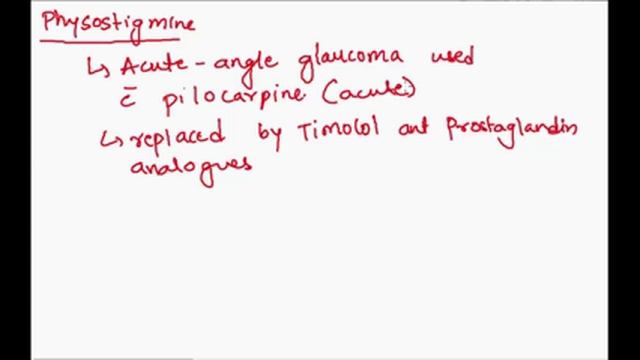 Physostigmine
↳ Acute-angle glaucoma used
c̄ pilocarpine (acute)
↳ replaced by Timolol ant Prostaglandin
analogues